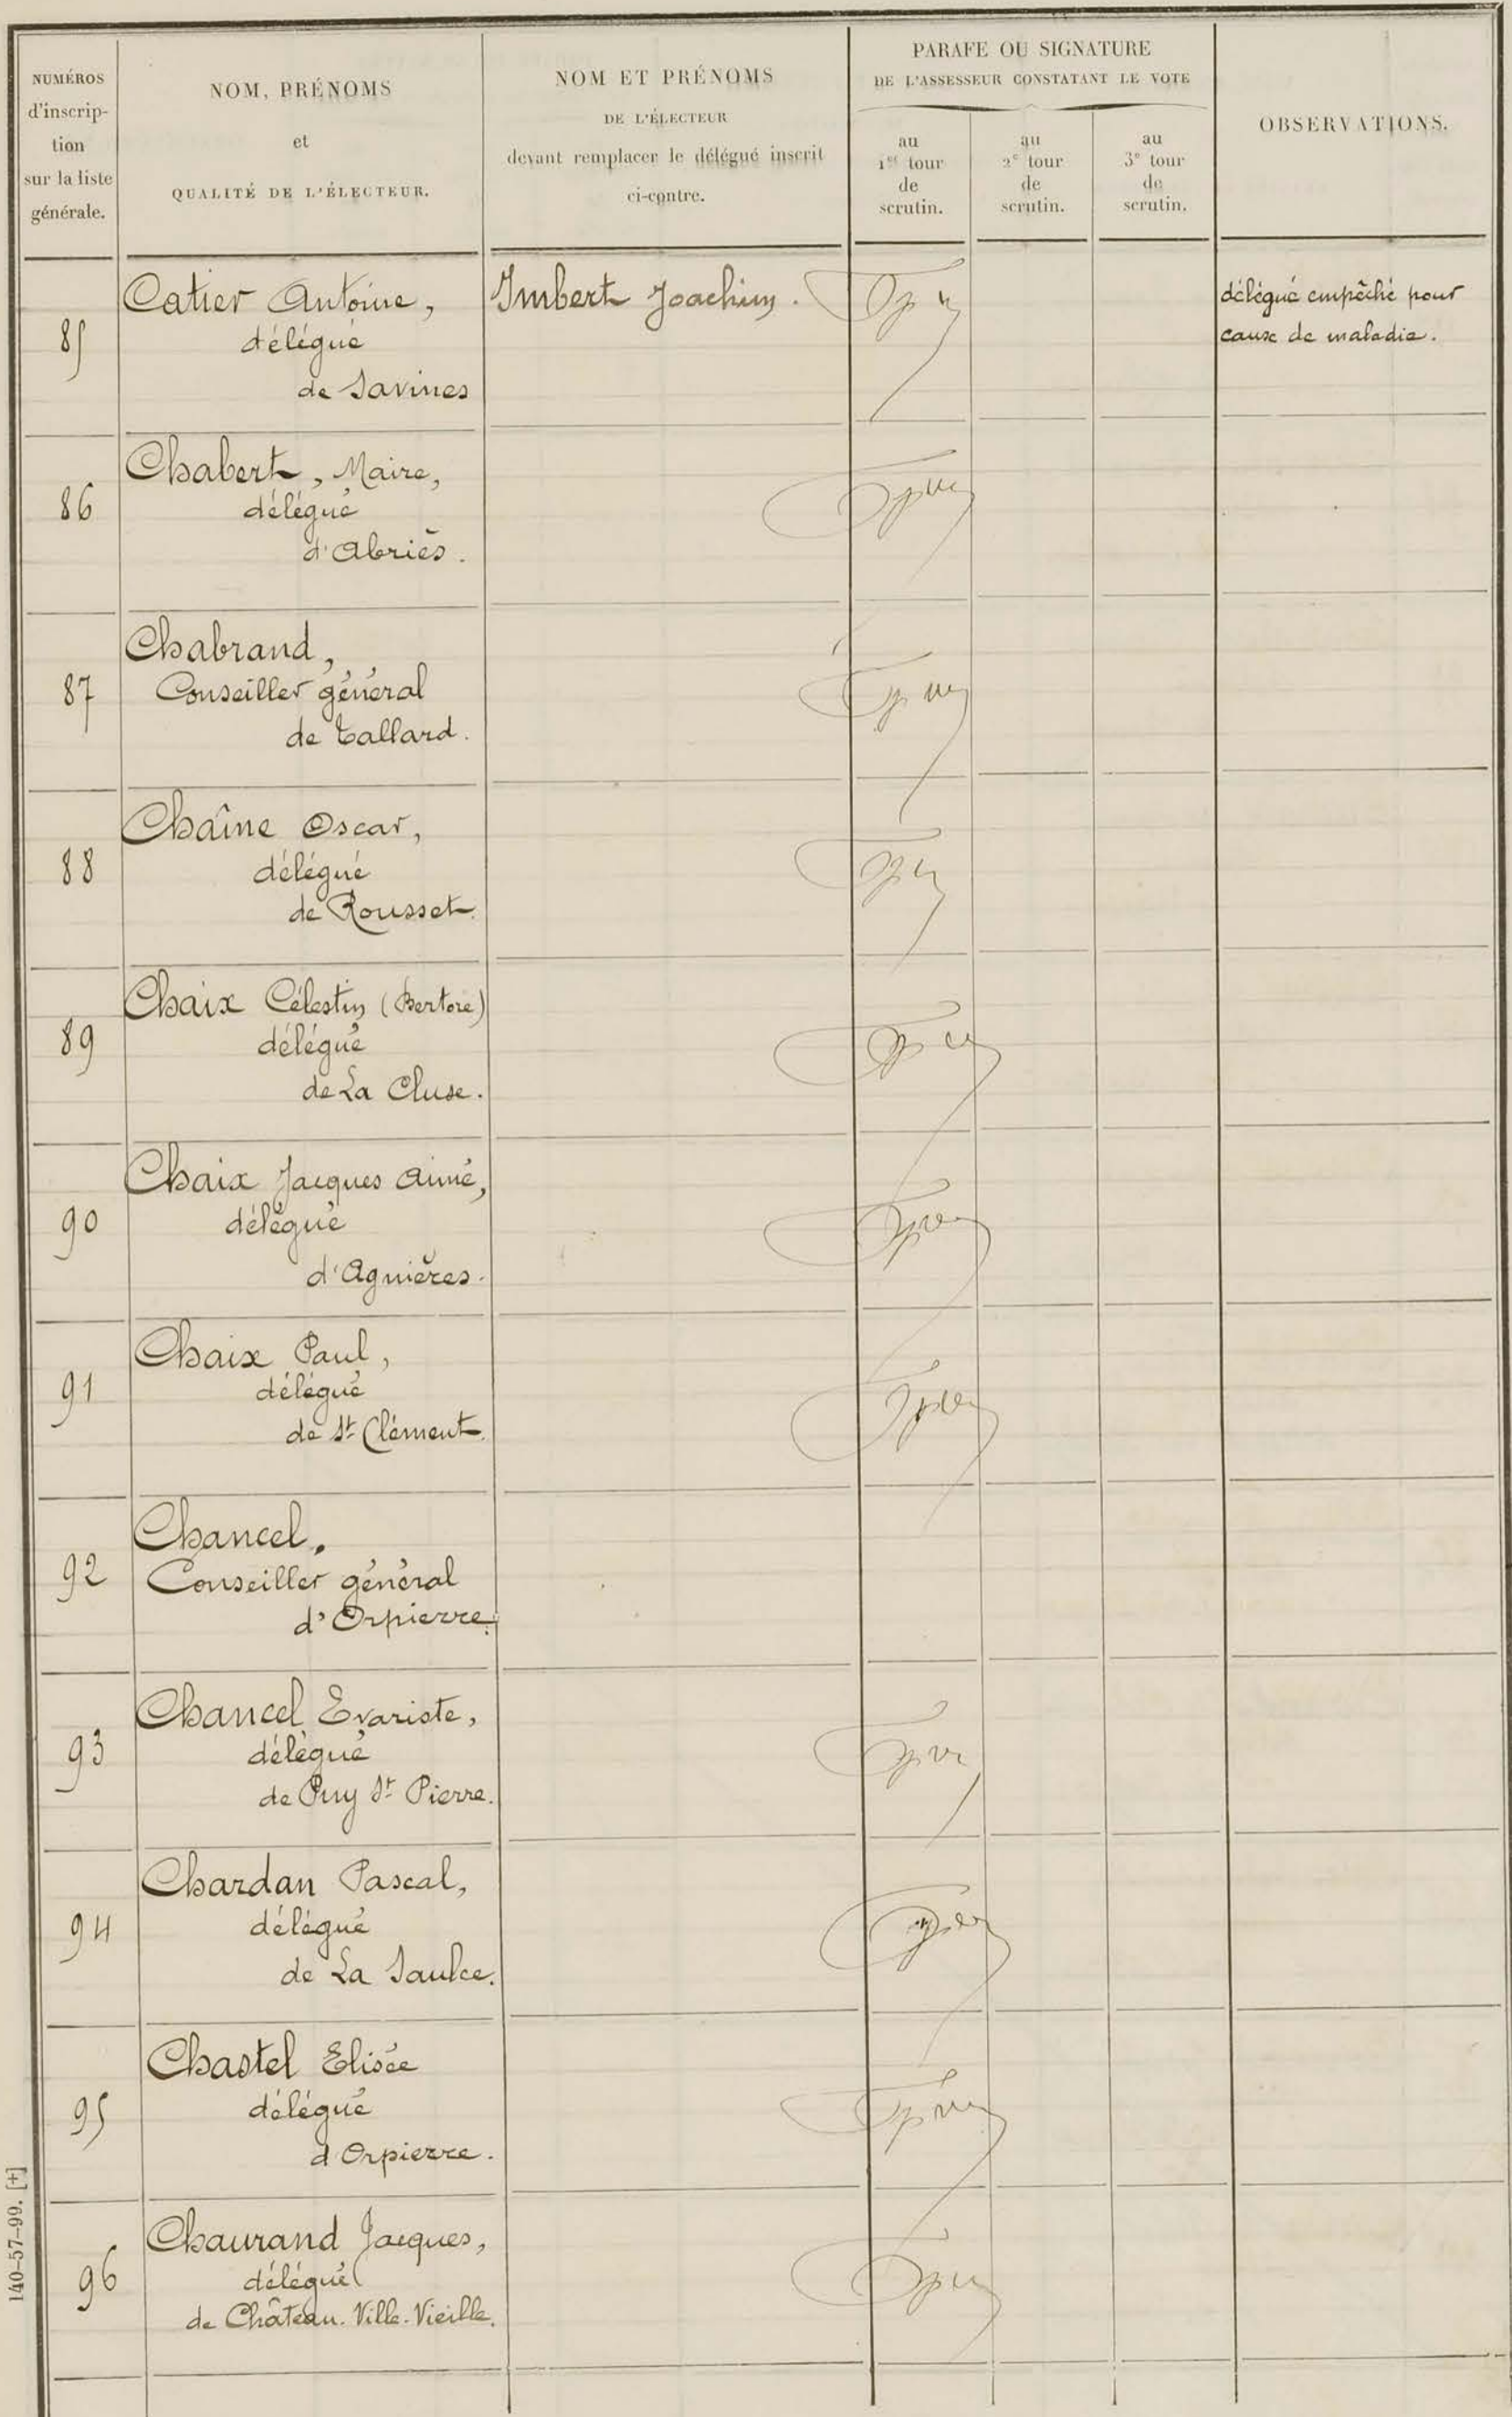 NUMÉROS
d'inscrip-
tion
sur la liste
générale.
NOM, PRÉNOMS
et
QUALITÉ DE L'ÉLECTEUR.
NOM ET PRÉNOMS
DE L'ÉLECTEUR
devant remplacer le délégué inscrit
ci-contre.
PARAFE OU SIGNATURE
DE L'ASSESSEUR CONSTATANT LE VOTE
au
1er tour
de
scrutin.
au
2e tour
de
scrutin.
au
3e tour
de
scrutin.
OBSERVATIONS.
85
Catier Antoine,
délégué
de Savines
Imbert Joachim.
délégué empêché pour
cause de maladie.
86
Chabert, Maire,
délégué
d'Abriès.
87
Chabrand,
Conseiller général
de Tallard.
88
Chaîne Oscar,
délégué
de Rousset.
89
Chaix Célestin (Bertore)
délégué
de La Cluse.
90
Chaix Jacques Aimé,
délégué
d'Agnières.
91
Chaix Paul,
délégué
de St Clément.
92
Chancel.
Conseiller général
d'Orpierre.
93
Chancel Evariste,
délégué
de Puy St Pierre.
94
Chardan Pascal,
délégué
de La Saulce.
95
Chastel Elisée
délégué
d'Orpierre.
96
Chaurand Jacques,
délégué
de Château-Ville-Vieille.
140-57-99. [+]